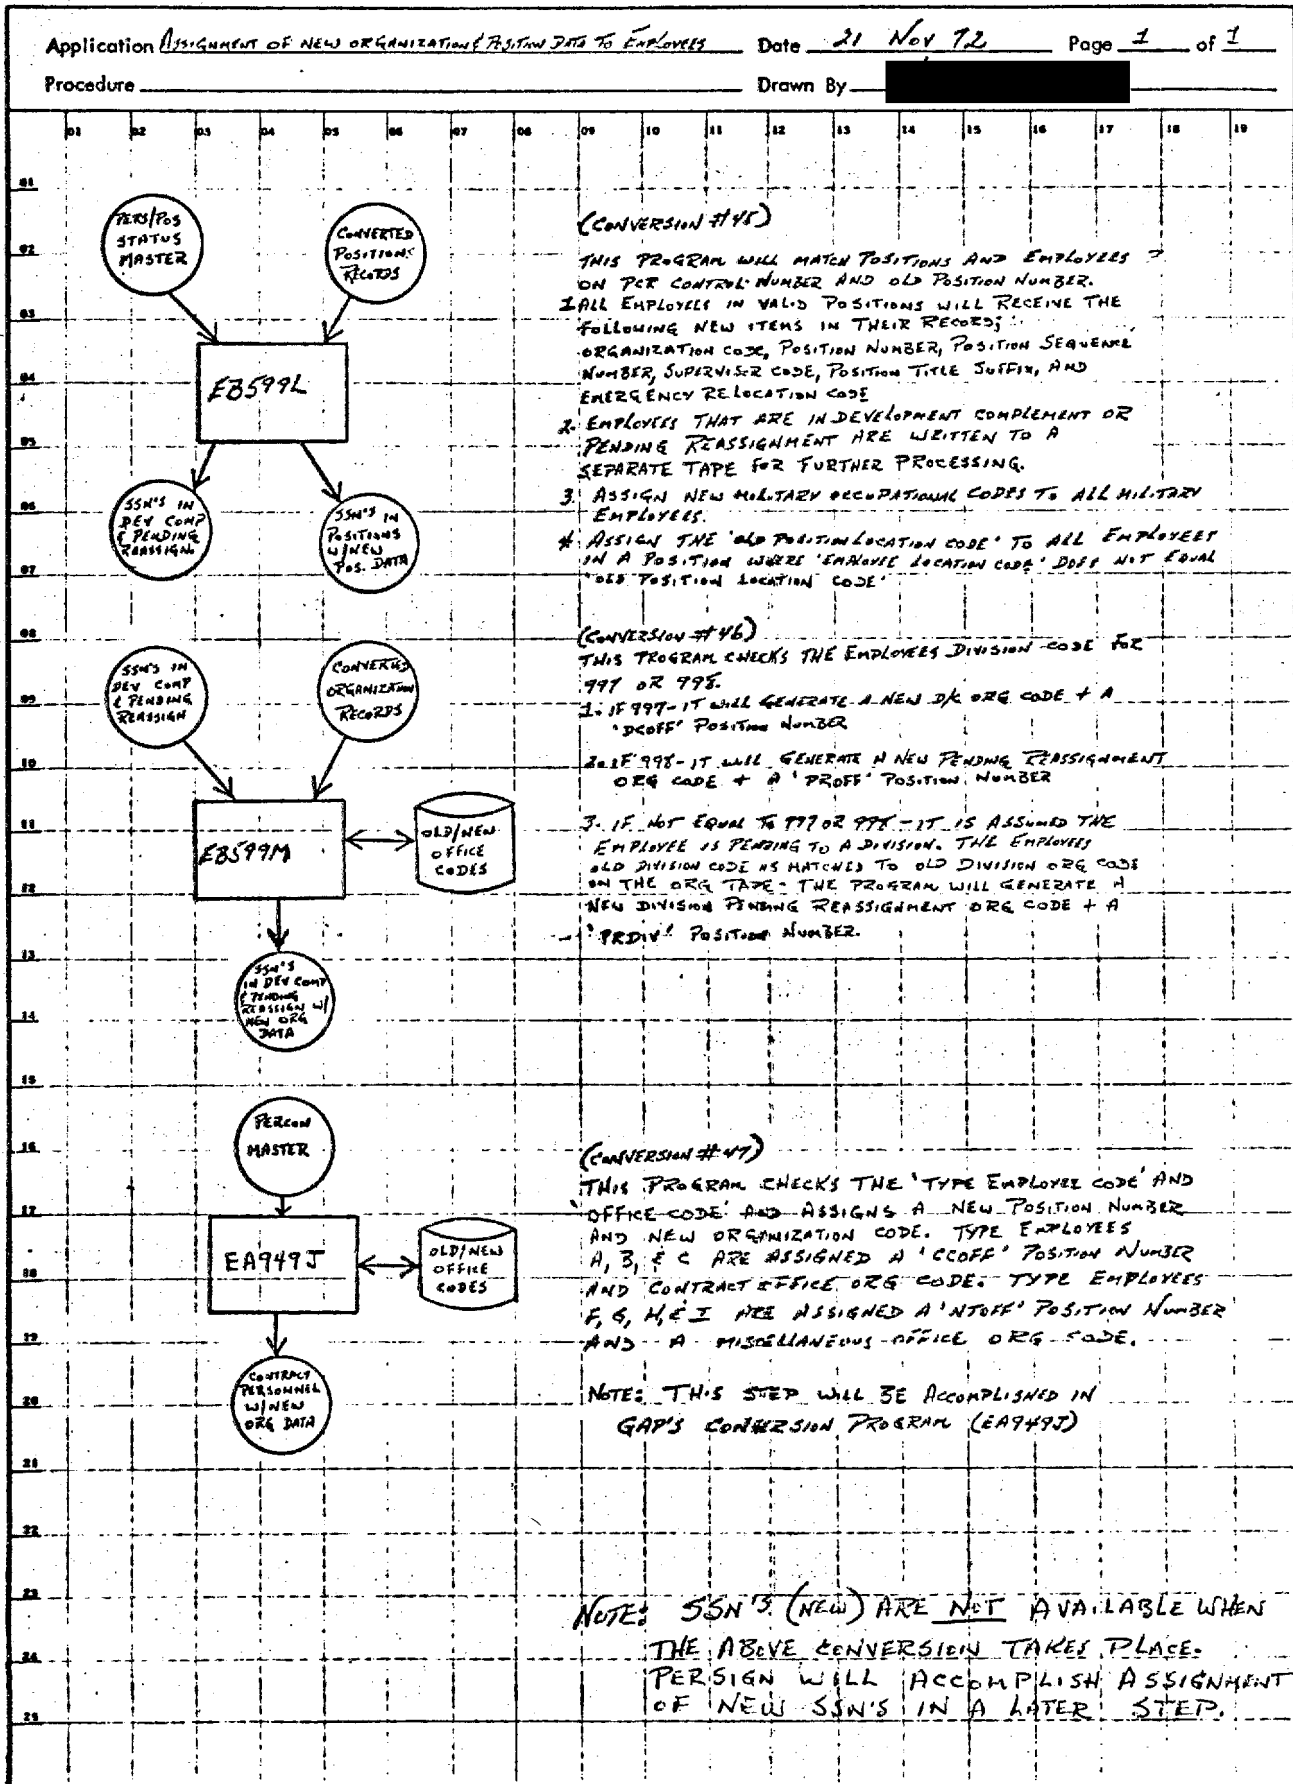 Application ASSIGNMENT OF NEW ORGANIZATION & POSITION DATA TO EMPLOYEES Date 21 NOV 72 Page 1 of 1
Procedure Drawn By
01 02 03 04 05 06 07 08 09 10 11 12 13 14 15 16 17 18 19
01
02
03
04
05
06
07
08
09
10
11
12
13
14
15
16
17
18
19
20
21
22
23
24
25
PERS/POS
STATUS
MASTER
CONVERTED
POSITIONS
RECORDS
EB599L
SSN'S IN
DEV COMP
& PENDING
REASSIGN
SSN'S IN
POSITIONS
W/NEW
POS. DATA
(CONVERSION #45)
THIS PROGRAM WILL MATCH POSITIONS AND EMPLOYEES
ON PCR CONTROL NUMBER AND OLD POSITION NUMBER.
1 ALL EMPLOYEES IN VALID POSITIONS WILL RECEIVE THE
FOLLOWING NEW ITEMS IN THEIR RECORD;
ORGANIZATION CODE, POSITION NUMBER, POSITION SEQUENCE
NUMBER, SUPERVISOR CODE, POSITION TITLE SUFFIX, AND
EMERGENCY RELOCATION CODE
2. EMPLOYEES THAT ARE IN DEVELOPMENT COMPLEMENT OR
PENDING REASSIGNMENT ARE WRITTEN TO A
SEPARATE TAPE FOR FURTHER PROCESSING.
3. ASSIGN NEW MILITARY OCCUPATIONAL CODES TO ALL MILITARY
EMPLOYEES.
4. ASSIGN THE 'OLD POSITION LOCATION CODE' TO ALL EMPLOYEES
IN A POSITION WHERE 'EMPLOYEE LOCATION CODE' DOES NOT EQUAL
'OLD POSITION LOCATION CODE'
SSN'S IN
DEV COMP
& PENDING
REASSIGN
CONVERTED
ORGANIZATION
RECORDS
EB599M
OLD/NEW
OFFICE
CODES
SSN'S
IN DEV COMP
& PENDING
REASSIGN W/
NEW ORG
DATA
(CONVERSION #46)
THIS PROGRAM CHECKS THE EMPLOYEES DIVISION CODE FOR
997 OR 998.
1. IF 997 - IT WILL GENERATE A NEW D/C ORG CODE + A
'DCOFF' POSITION NUMBER
2. IF 998 - IT WILL GENERATE A NEW PENDING REASSIGNMENT
ORG CODE + A 'PROFF' POSITION NUMBER
3. IF NOT EQUAL TO 997 OR 998 - IT IS ASSUMED THE
EMPLOYEE IS PENDING TO A DIVISION. THE EMPLOYEES
OLD DIVISION CODE IS MATCHED TO OLD DIVISION ORG CODE
ON THE ORG TAPE - THE PROGRAM WILL GENERATE A
NEW DIVISION PENDING REASSIGNMENT ORG CODE + A
'PRDIV' POSITION NUMBER.
PERCON
MASTER
EA949J
OLD/NEW
OFFICE
CODES
CONTRACT
PERSONNEL
W/NEW
ORG DATA
(CONVERSION #47)
THIS PROGRAM CHECKS THE 'TYPE EMPLOYEE CODE' AND
'OFFICE CODE' AND ASSIGNS A NEW POSITION NUMBER
AND NEW ORGANIZATION CODE. TYPE EMPLOYEES
A, B, & C ARE ASSIGNED A 'CCOFF' POSITION NUMBER
AND CONTRACT OFFICE ORG CODE. TYPE EMPLOYEES
F, G, H, & I ARE ASSIGNED A 'NTOFF' POSITION NUMBER
AND A MISCELLANEOUS OFFICE ORG CODE.
NOTE: THIS STEP WILL BE ACCOMPLISHED IN
GAP'S CONVERSION PROGRAM (EA949J)
NOTE: SSN'S (NEW) ARE NOT AVAILABLE WHEN
THE ABOVE CONVERSION TAKES PLACE.
PERSIGN WILL ACCOMPLISH ASSIGNMENT
OF NEW SSN'S IN A LATER STEP.